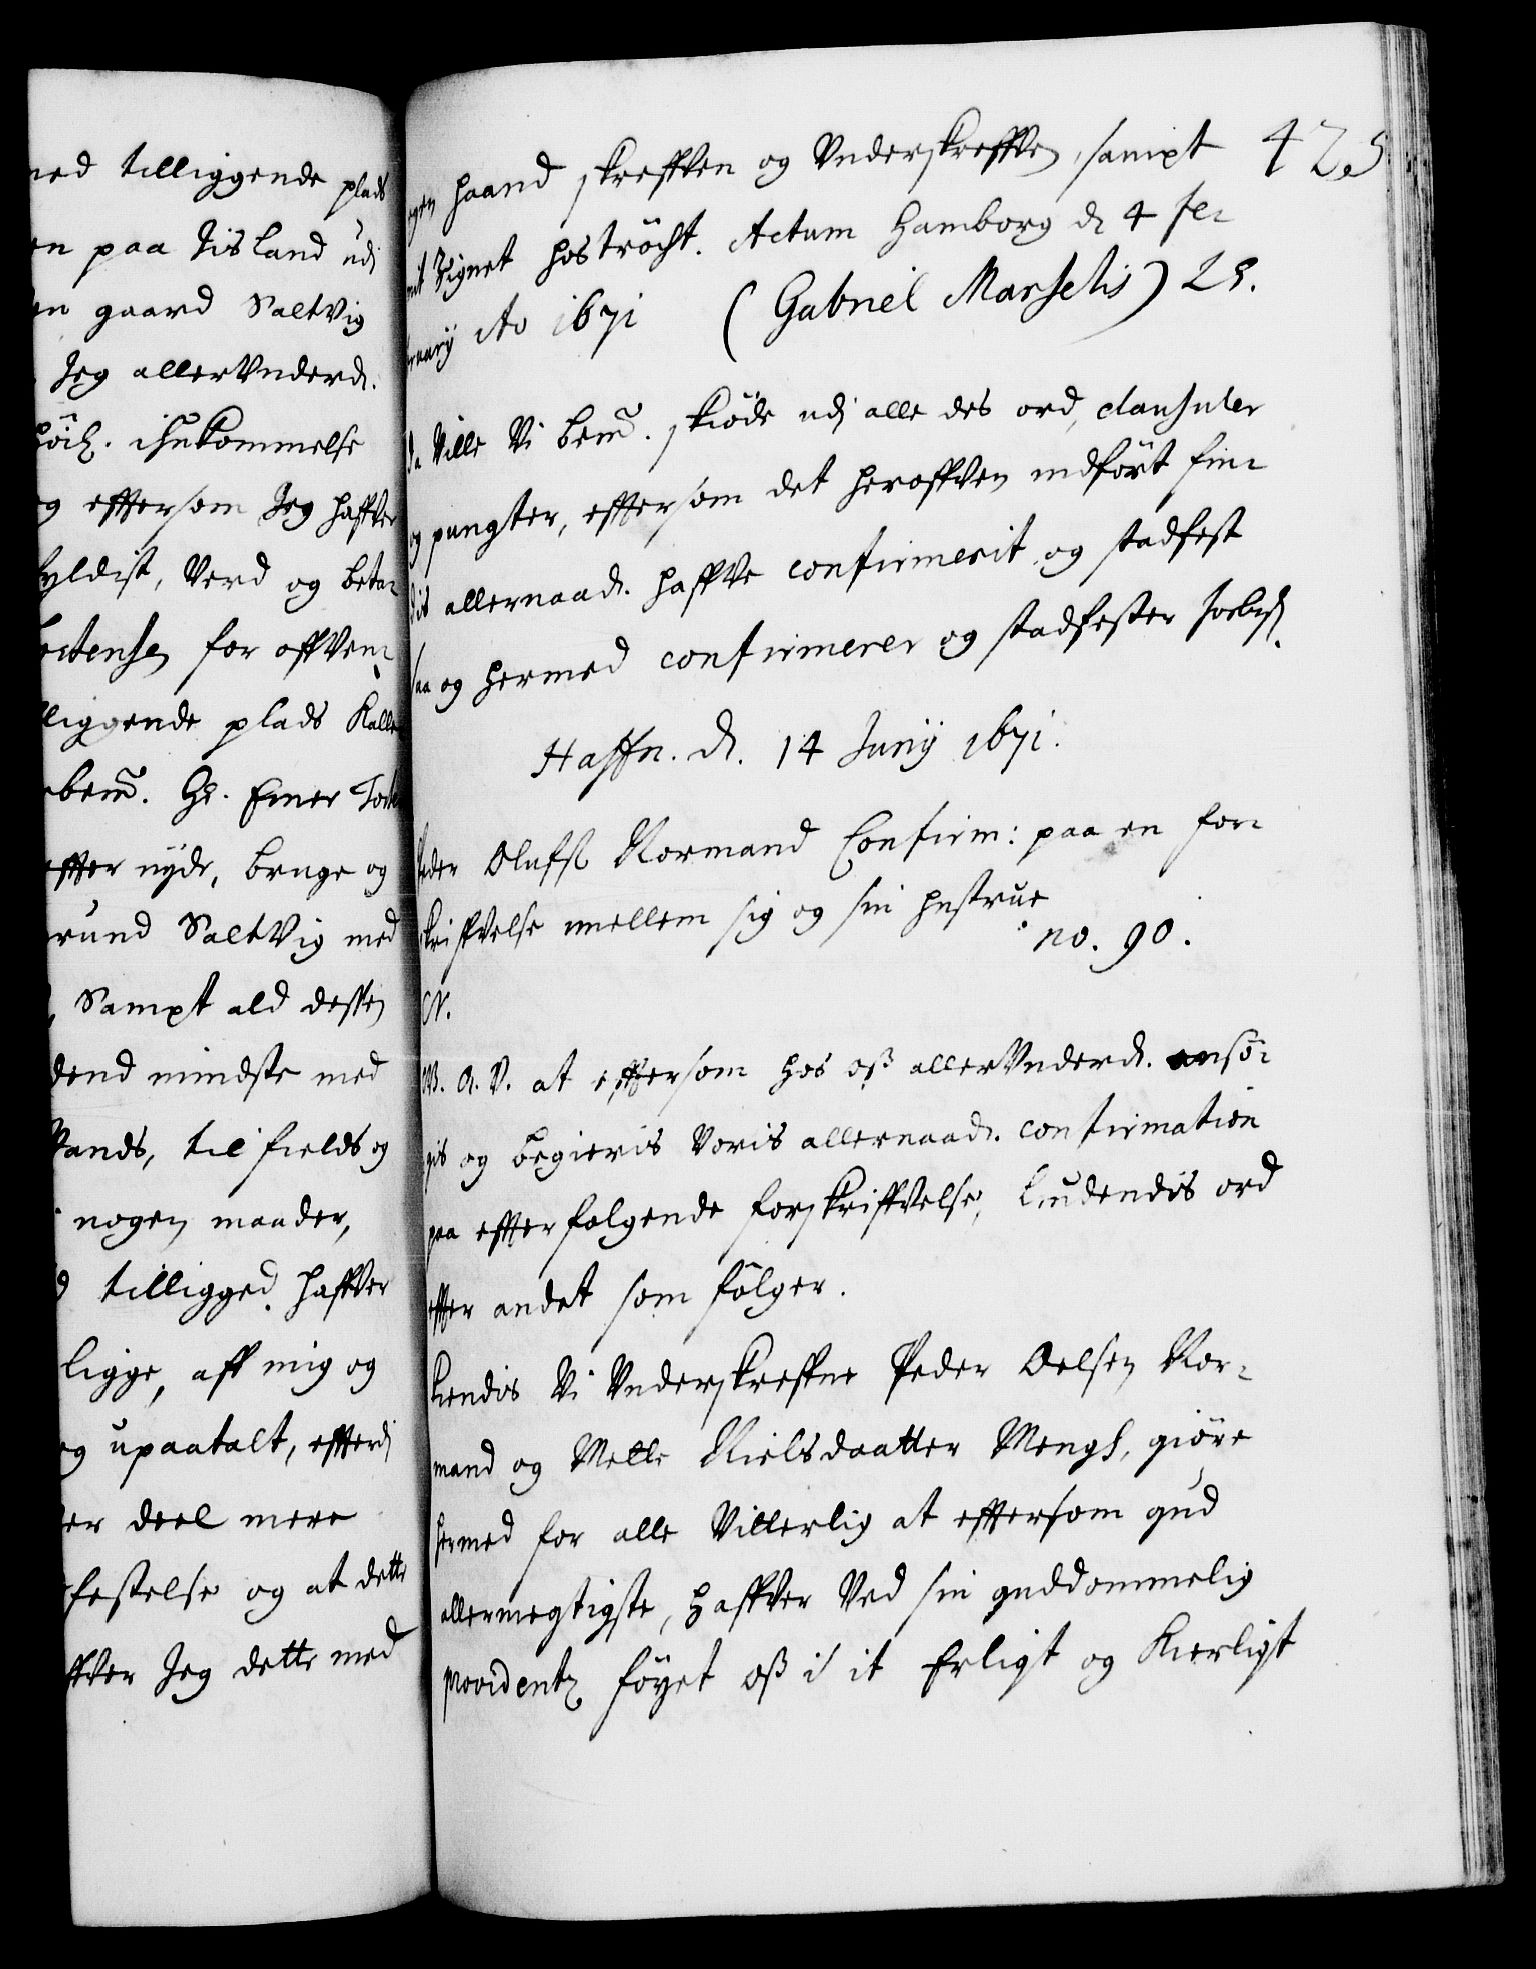 ned tilliggende plads
en paa Tisland udj
en gaard Saltvig
Jeg allerVnderd.
höih. ihukommelse
og effttersom Jeg haffver
yldist, Verd og beta-
ctense for offven-
lliggende plads Kalle
bemt. Hr. Emer
effter nyde, bruge og
grund Saltvig med
, Sampt ald dessen
dend mindste med
Vands, til fields og
nogen maader,
tilligged. haffver
ligge, aff mig og
og upaatalt, effterdj
er deel mere
festelse og at dette
ffver Jeg dette med

425
egen haand skreffven og Vnderskreffven, sampt
mit Signet hoströcht. Actum Hamborg d. 4 fe-
bruarij Ao 1671 (Gabriel Marselis) LS.
da Ville Vi bemt. skiöde udj alle des ord, clausuler
og pungter, efftersom det heroffven indfört fin-
dis allernaad. haffve confirmerit og stadfest
saa og hermed confirmerer og stadfester forbydj.
Haffn. d. 14 Junij 1671.
Peder Olufsl. Normand Confirm: paa en for-
skriffvelse imellem sig og sin hustrue
no. 90.
CV.
W. A. V. at efftersom hos oss allerVnderd. ansö-
gis og begieris Voris allernaad. confirmation
paa effterfolgende forskriffvelse, liudendis ord
effter andet som fölger.
Kiendis Vi Vnderskreffne Peder Oelsen Nor-
mand og Mette Nielsdaatter Mengs, giöre
hermed for alle Vitterlig at efftersom gud
allermegtigste, haffver Ved sin guddommelig
providentz föyet oss i it Erligt og Kierligt